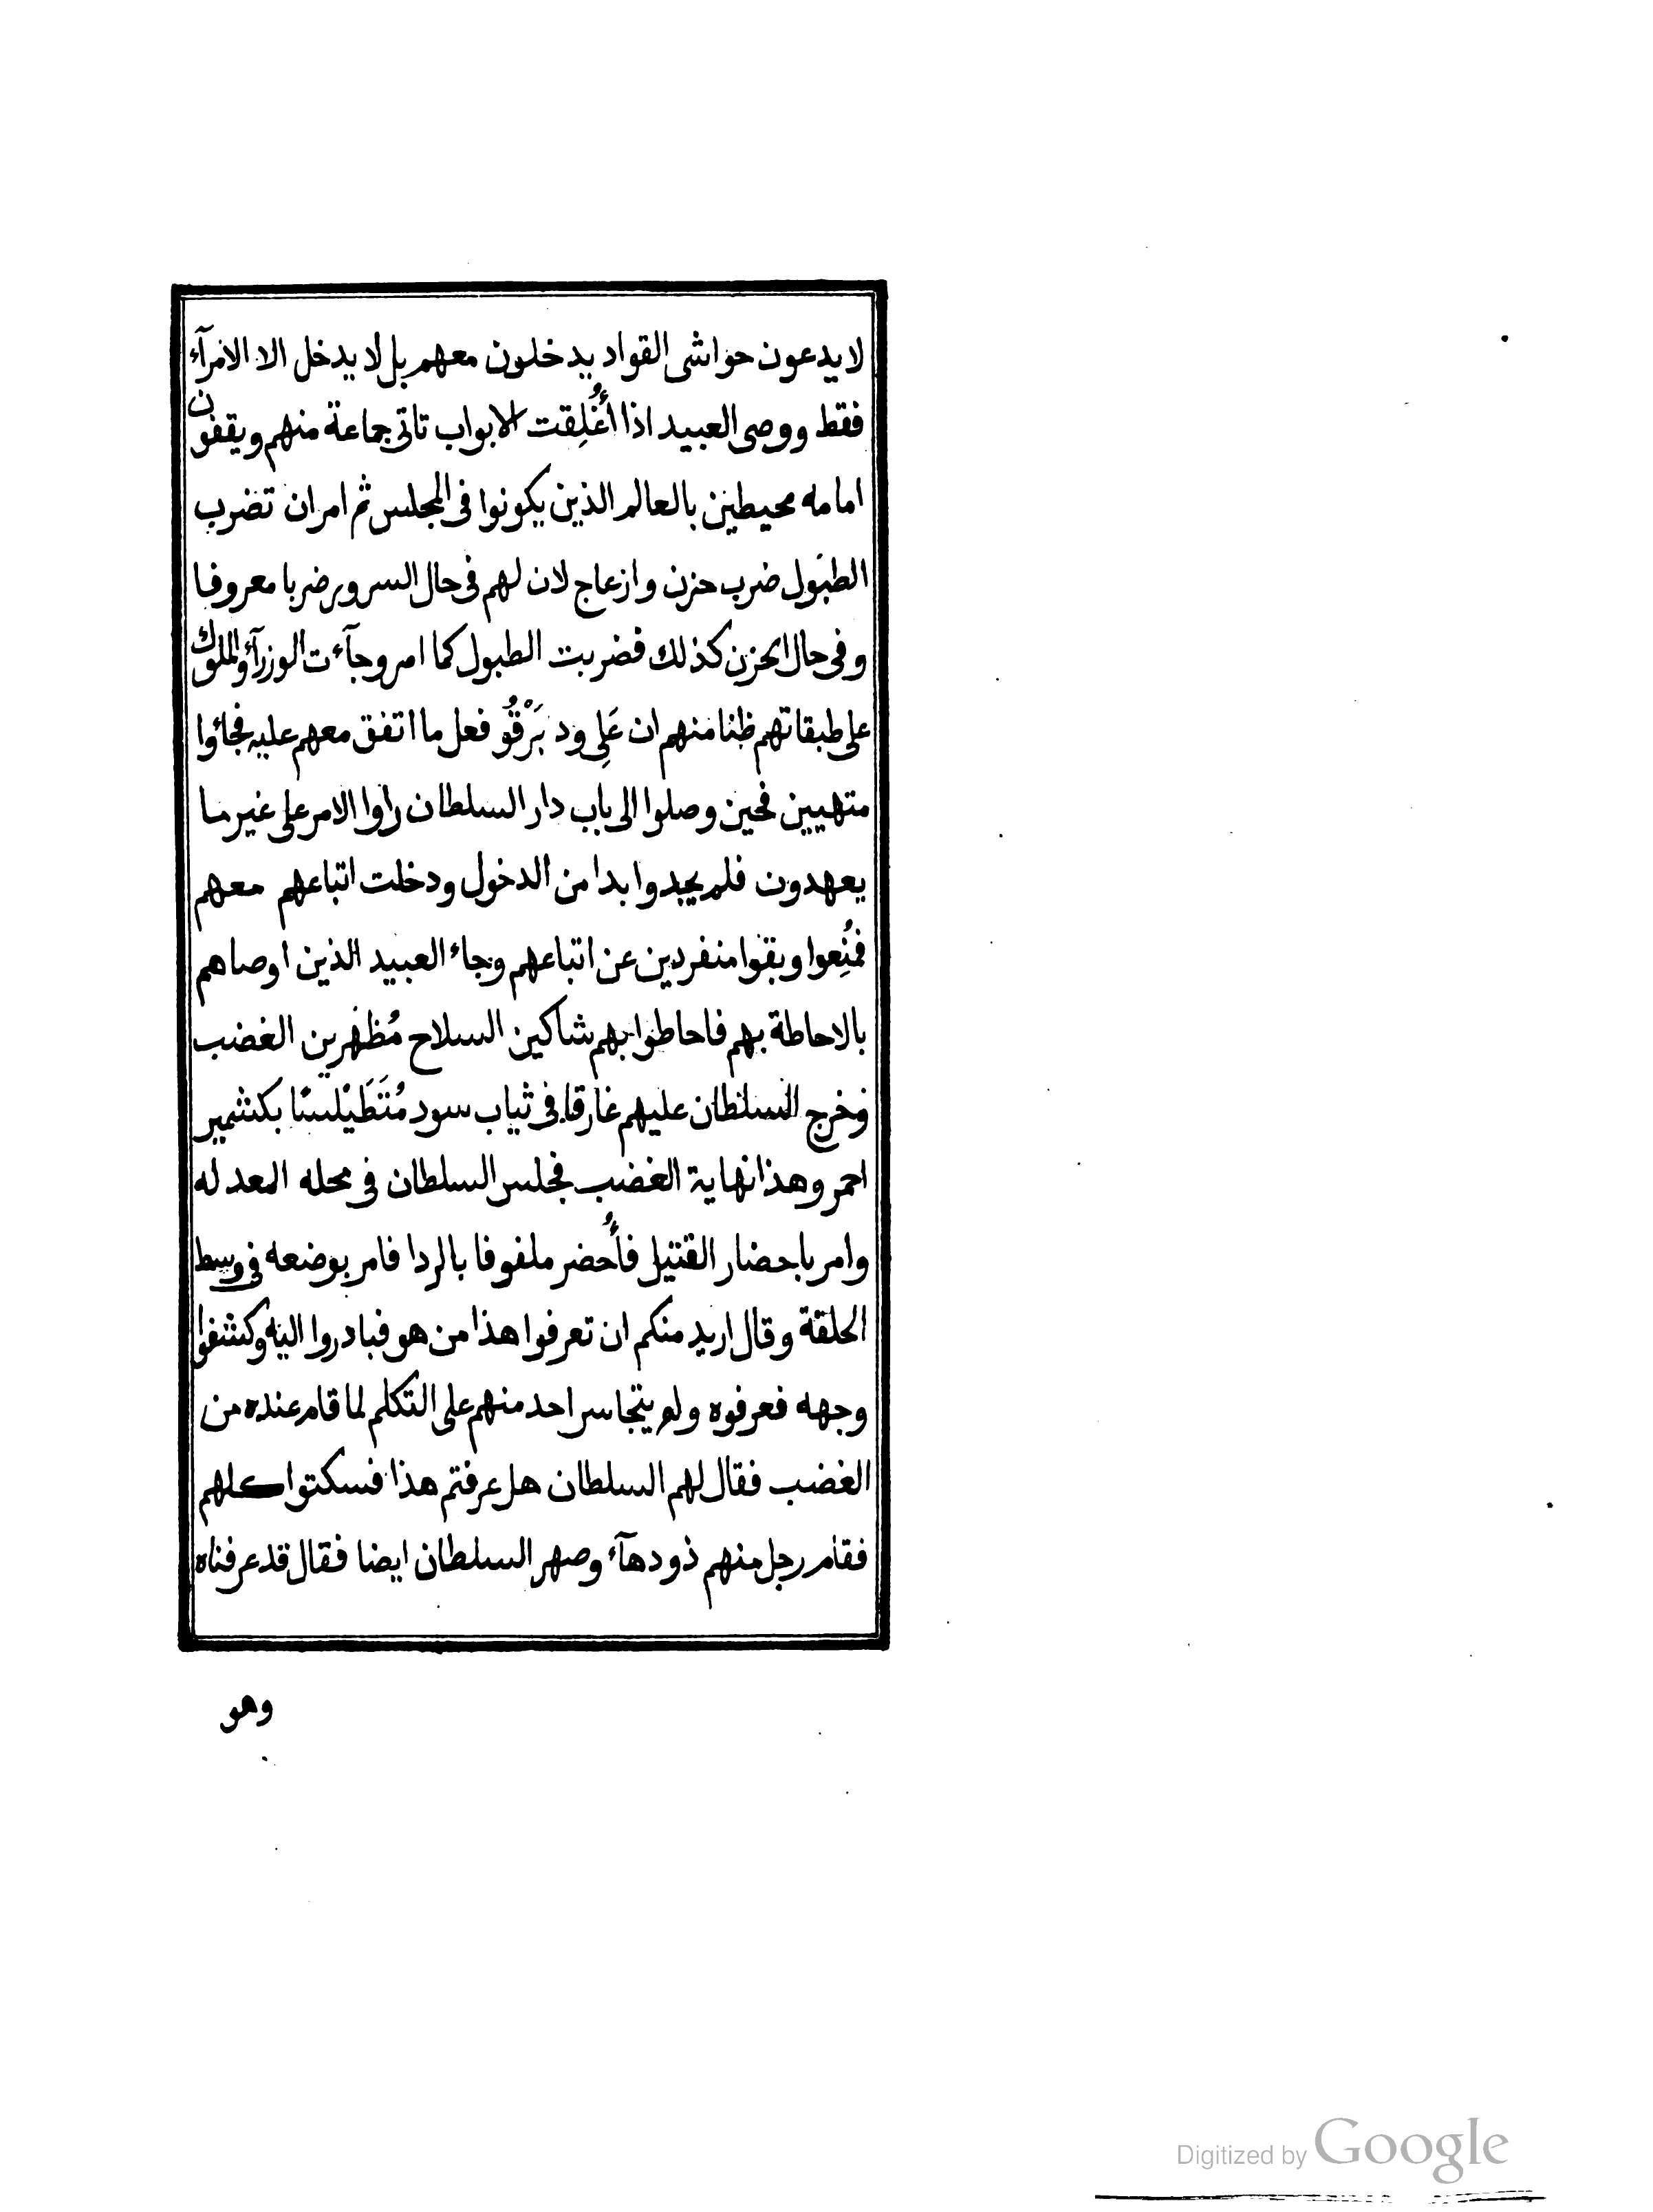 لا يدعون حواشى القواد يدخلون معهم بل لا يدخل الا الامرآء
فقط ووصى العبيد اذا أُغْلِقت الابواب تاتى جماعة منهم ويقفون
امامه محيطين بالعالم الذين يكونوا فى المجلس ثم امر ان تضرب
الطبول ضرب حزن وازعاج لان لهم فى حال السرور ضربا معروفا
وفى حال الحزن كذلك فضربت الطبول كما امر وجآءت الوزرآء والملوك
على طبقاتهم ظنا منهم ان عَلِى ود بَرْقُو فعل ما اتفق معهم عليه فجاؤا
متهيين فحين وصلوا الى باب دار السلطان راوا الامر على غير ما
يعهدون فلم يجدوا بدا من الدخول ودخلت اتباعهم معهم
فمُنِعوا وبقوا منفردين عن اتباعهم وجاء العبيد الذين اوصاهم
بالاحاطة بهم فاحاطوا بهم شاكين السلاح مُظهرين الغضب
وخرج السلطان عليهم غارقا فى ثياب سود مُتَطَيْلسًا بكشمير
احمر وهذا نهاية الغضب فجلس السلطان فى محله المعد له
وامر باحضار القتيل فأُحضر ملفوفا بالردا فامر بوضعه فى وسط
الحلقة وقال اريد منكم ان تعرفوا هذا من هو فبادروا اليه وكشفوا
وجهه فعرفوه ولم يتجاسر احد منهم على التكلم لما قام عنده من
الغضب فقال لهم السلطان هل عرفتم هذا فسكتوا كلهم
فقام رجل منهم ذو دهآء وصهر السلطان ايضا فقال قد عرفناه
وهو
Digitized by Google